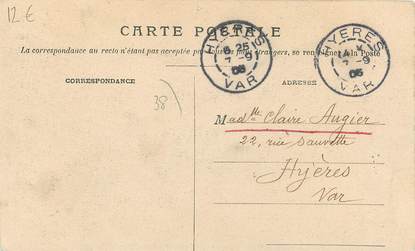 12 €
CARTE POSTALE
La correspondance au recto n'étant pas acceptée par tous les pays étrangers, se renseigner à la Poste
HYÈRES
8 25
7 -9
05
VAR
HYÈRES
7 -9
05
VAR
CORRESPONDANCE
ADRESSE
38
Madlle Claire Augier
22, rue Sauvette
Hyères
Var